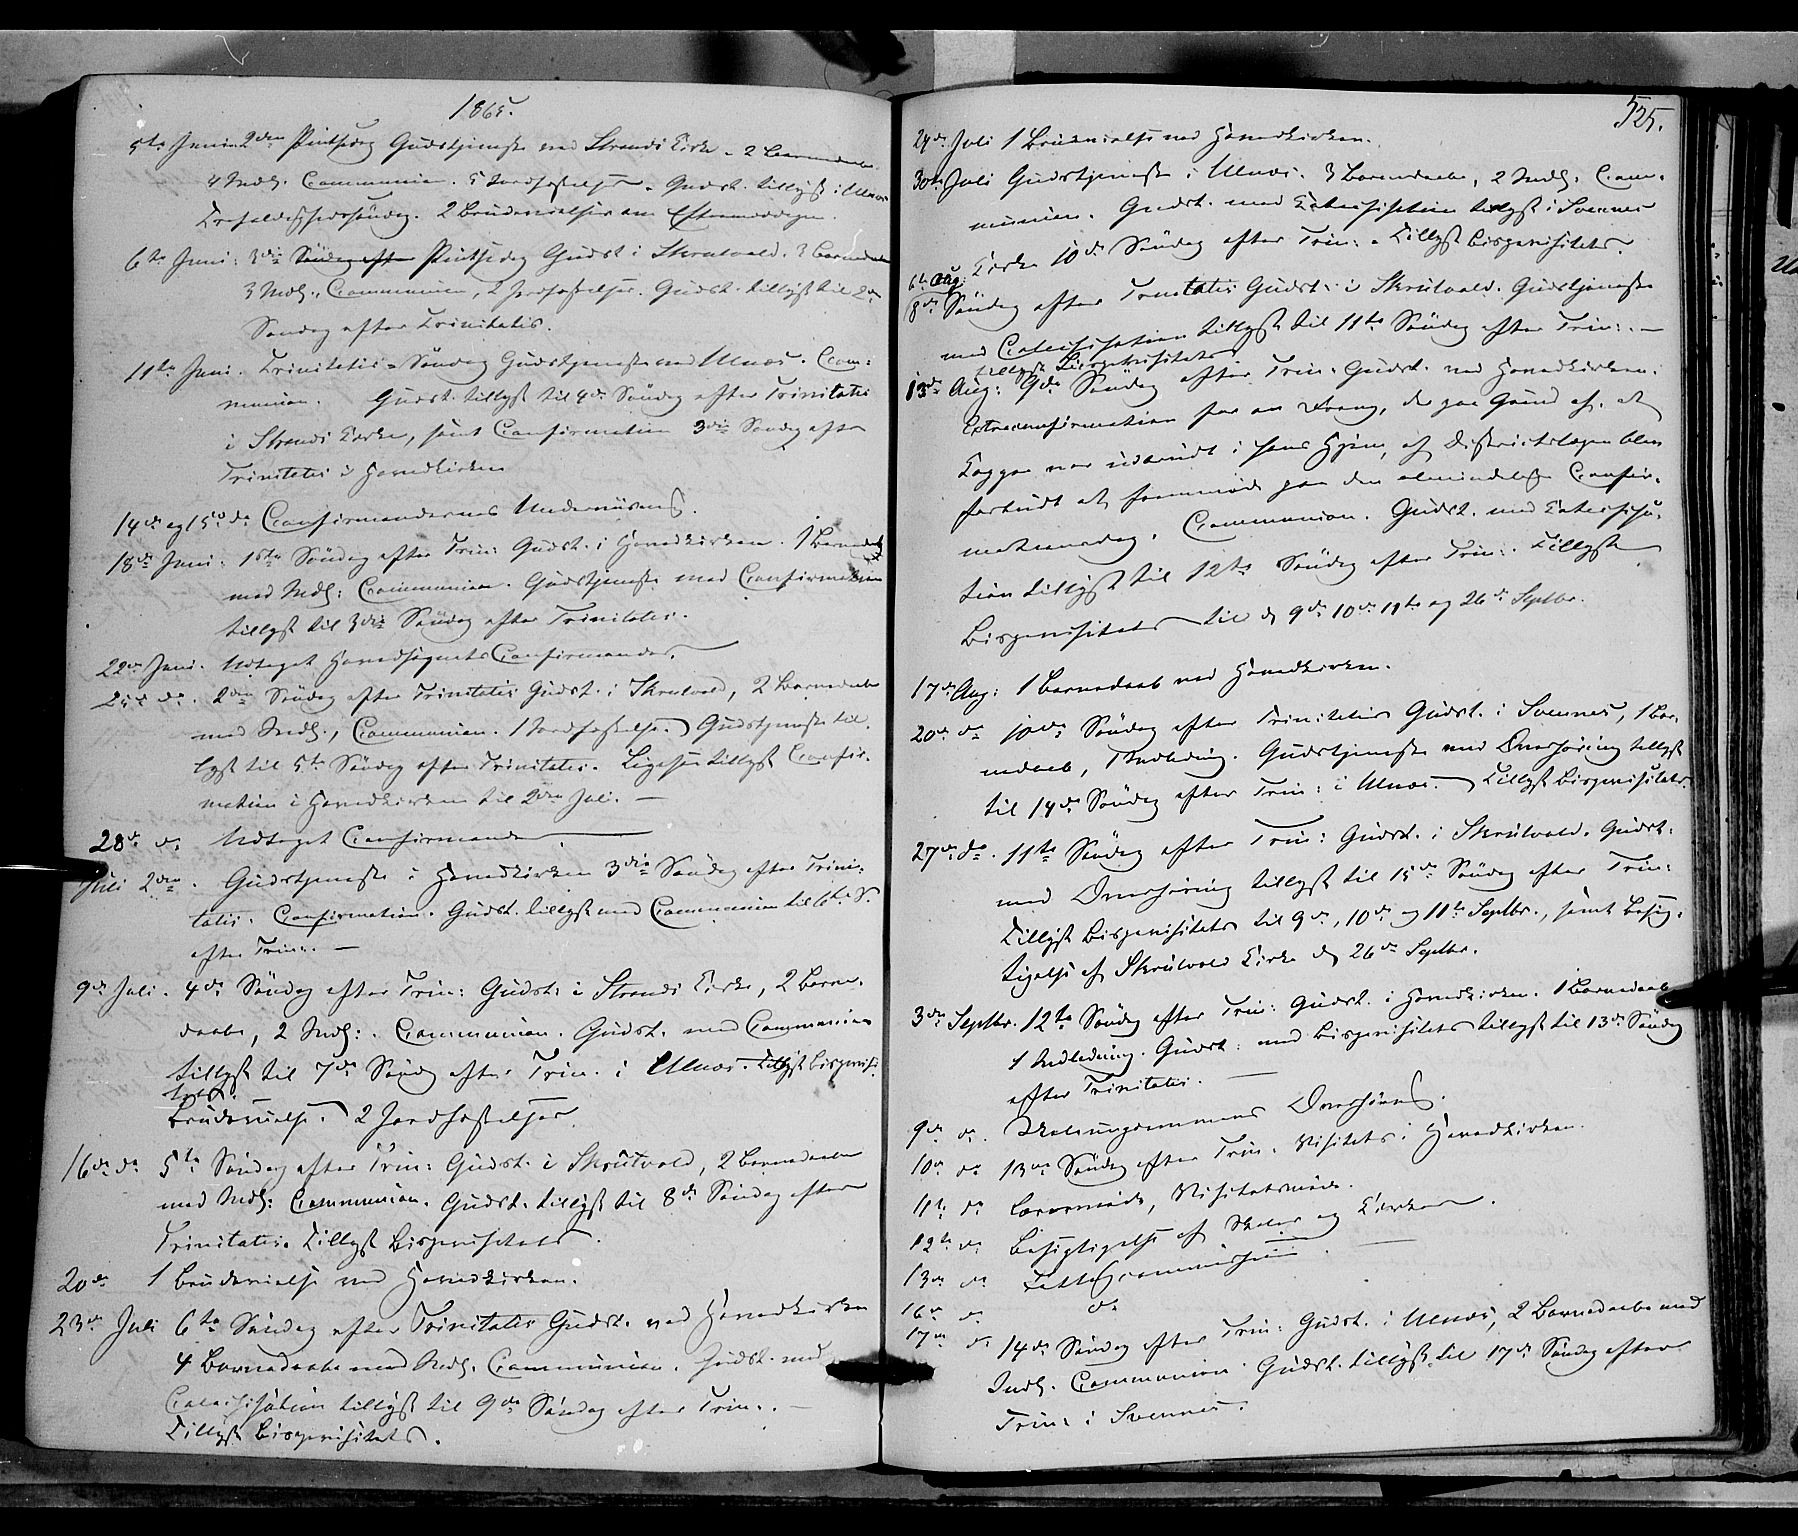 1865.
5te Juni 2den Pintsedag Gudstjeneste ved Strands Kirke - 2 Barnedaab
4 Indl. Communion. 5 Jordfæstelser. Gudst. tillyst i Ulnæs
Trefoldighedssöndag. 2 Brudevielser om Eftermiddagen.
6te Juni: 3die Söndag efter Pintsedag Gudst i Skrutvold. 3 Barnedaab
3 Indl., Communion, 2 Jordfæstelser. Gudst. tillyst til 2den
Söndag efter Trinitatis.
11te Juni. Trinitatis-Söndag Gudstjeneste ved Ulnæs. Com-
munion. Gudst. tillyst til 4de Söndag efter Trinitatis
i Strands Kirke, samt Confirmation 3die Söndag efter
Trinitatis i Hovedkirken
14de og 15de do Confirmandernes Underviisning.
18de Juni: 1ste Söndag efter Trin: Gudst. i Hovedkirken. 1 Barnedaab
med Indl: Communion. Gudstjeneste med Confirmation
tillyst til 3die Söndag efter Trinitatis.
22de Juni. Modtaget Hovedsognets Confirmander.
25de do. 2den Söndag efter Trinitatis Gudst. i Skrutvold, 2 Barnedaab
med Indl., Communion. 1 Jordfæstelse. Gudstjeneste til-
lyst til 5te Söndag efter Trinitatis. Ligesaa tillyst Confir-
mation i Hovedkirken til 2den Juli. —
28de do. Modtaget Confirmander
Juli 2den. Gudstjeneste i Hovedkirken 3die Söndag efter Trini-
tatis. Confirmation. Gudst. tillyst med Communion til 6te S.
efter Trin:. —
9de Juli. 4de Söndag efter Trin: Gudst: i Strands Kirke, 2 Barne-
daabe, 2 Indl:. Communion. Gudst. med Communion
tillyst til 7de Söndag efter Trin. i Ulnæs. Tillyst Bispevisi-
tats.
Brudevielse. 2 Jordfæstelser.
16de do 5te Söndag efter Trin: Gudst: i Skrutvold, 2 Barnedaabe
med Indl: Communion. Gudst. tillyst til 8de Söndag efter
Trinitatis. Tillyst Bispevisitats.
20de 1 Brudevielse ved Hovedkirken.
23de Juli 6te Söndag efter Trinitatis Gudst. ved Hovedkirken
4 Barnedaabe med Indl. Communion. Gudst. med
Catechisation tillyst til 9de Söndag efter Trin:. —
Tillyst Bispevisitats.
525.
24de Juli 1 Brudevielse ved Hovedkirken.
30de Juli Gudstjeneste i Ulnæs. 3 Barnedaabe, 2 Indl: Com-
munion. Gudst. med Catechisation tillyst i Svennes
Kirke 10de Söndag efter Trin: - Tillyst Bispevisitats.
6te Aug:
8de Söndag efter Trinitatis Gudst. i Skrutvold. Gudstjeneste
med Catechisation tillyst til 11te Söndag efter Trin:. —
tillyst Bispevisitats
13de Aug: 9de Söndag efter Trin. Gudst. ved Hovedkirken.
Extraconfirmation for en Dreng, der paa Grund af, at
Kopper var udbrudt i hans Hjem, af Districtslægen blev
forbudt at fremmøde paa den almindelige Confir-
mationsdag. Communion. Gudst. med Catechisa-
tion tillyst til 12te Söndag efter Trin:. Tillyst
Bispevisitats til d 9de 10de 11te og 26de Septbr.
17de Aug: 1 Barnedaab ved Hovedkirken.
20de do 10de Söndag efter Trinitatis Gudst. i Svennes, 1 Bar-
nedaab, 1 Indledning. Gudstjeneste med Overhøring tillyst
til 14de Söndag efter Trin: i Ulnæs. Tillyst Bispevisitats.
27de do. 11te Söndag efter Trin: Gudst. i Skrutvold. Gudst:
med Overhøring tillyst til 15de Söndag efter Trin:
Tillyst Bispevisitats til 9de, 10de og 11te Septbr., samt Besig-
tigelse af Skrutvold Kirke d 26de Septbr.
3die Septbr. 12te Söndag efter Trin: Gudst. i Hovedkirken. 1 Barnedaab
1 Indledning. Gudst: med Bispevisitats tillyst til 13de Söndag
efter Trinitatis. —
9de do. Skoleungdommens Overhøring.
10de do 13de Söndag efter Trin. Visitats i Hovedkirken.
11te do Læremøde, Visitatsmøde.
12te do Besigtigelse af Skoler og Kirker.
13de do Fattigcommission. —
16de do do
17de do 14de Söndag efter Trin: Gudst. i Ulnæs, 2 Barnedaabe med
Indl. Communion Gudst. tillyst til 17de Söndag efter
Trin: i Svennes.